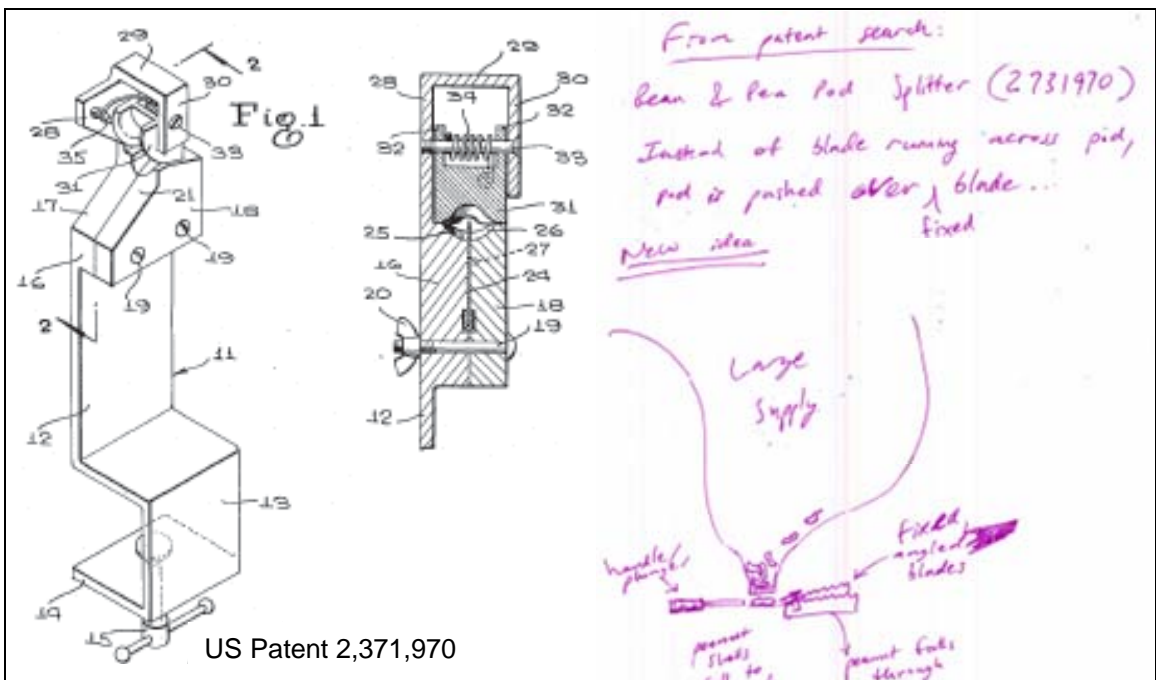 29
2
30
Fig.1
28
35
33
31
21
17
18
19
16
19
2
11
12
13
14
15
US Patent 2,371,970
29
28
34
30
32
32
33
31
25
26
27
16
24
20
18
19
12
From patent search:
Bean & Pea Pod Splitter (2731970)
Instead of blade running across pod,
pod is pushed over blade...
fixed
New idea
Large
Supply
handle/
plunger
fixed,
angled
blades
peanut
shells
peanut falls
through